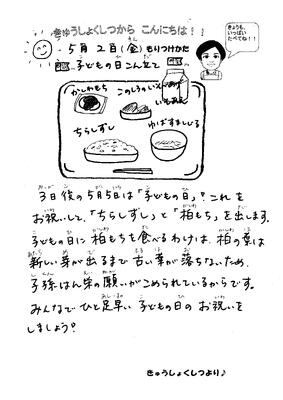 きゅうしょくしつから こんにちは！！
きょうも、
いっぱい
たべてね！！
5月2日(金)もりつけかた
子どもの日こんだて
かしわもち
このしろのいそべあげ
ちらしずし
ゆばすましじる
3日後の5月5日は「子どもの日」♪これを
お祝いして、「ちらしずし」と「柏もち」を出します。
子どもの日に柏もちを食べるわけは、柏の葉は
新しい芽が出るまで古い葉が落ちないため、
子孫はん栄の願いがこめられているからです。
みんなでひと足早い子どもの日のお祝いを
しましょう♪
きゅうしょくしつより♪